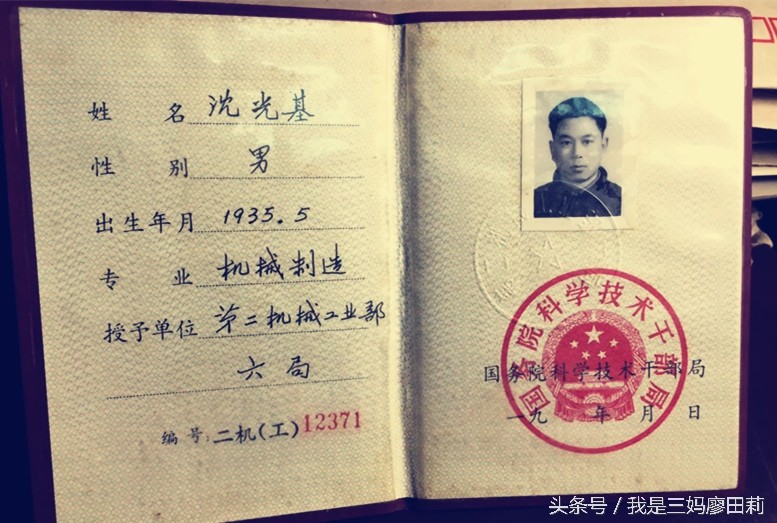 姓 名 沈光基
性 别 男
出生年月 1935.5
专 业 机械制造
授予单位 第二机械工业部
六局
编号:二机(工)12371
国务院科学技术干部局
国务院科学技术干部局
一九 年 月 日
头条号 / 我是三妈廖田莉